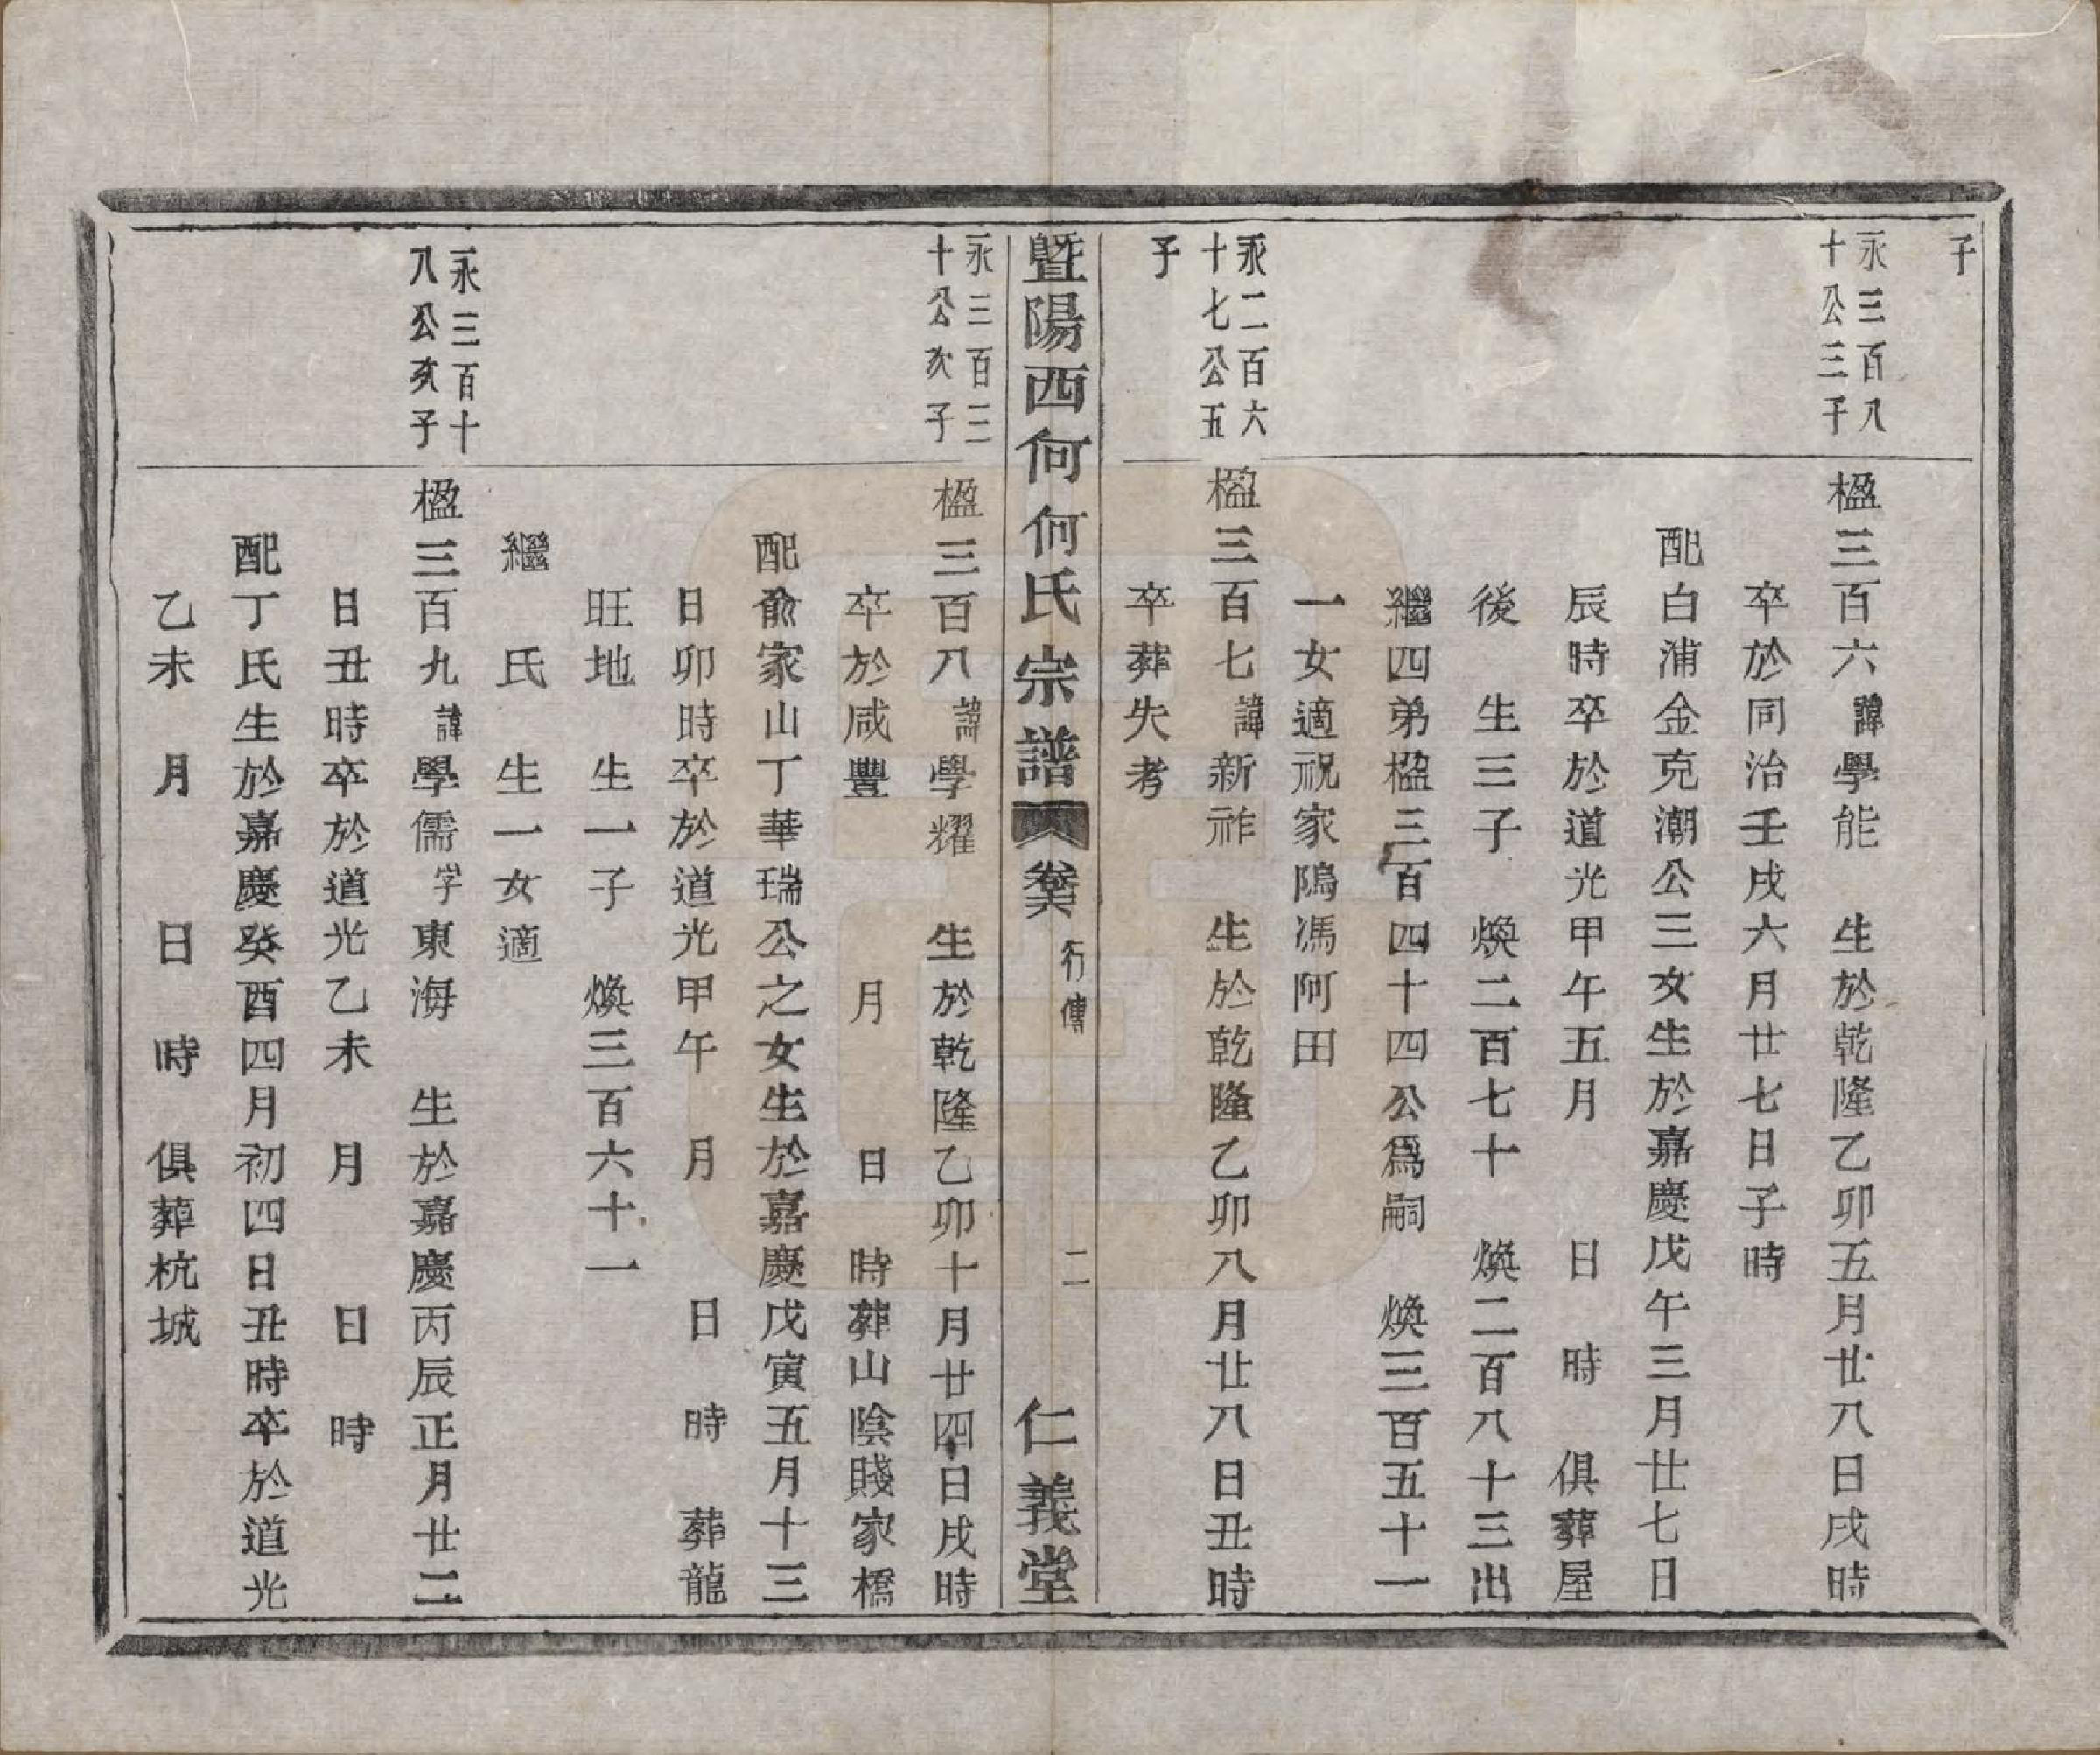 子
永三百八
十公三子
楹三百六諱學能　生於乾隆乙卯五月廿八日戌時
卒於同治壬戌六月廿七日子時
配白浦金克潮公三女生於嘉慶戊午三月廿七日
辰時卒於道光甲午五月　日　時　俱葬屋
後　生三子　煥二百七十　煥二百八十三出
繼四弟楹三百四十四公爲嗣　煥三百五十一
一女適祝家隖馮阿田
永二百六
十七公五
子
楹三百七諱新祚　生於乾隆乙卯八月廿八日丑時
卒葬失考
暨陽西何何氏宗譜　卷六　行傳　二　仁義堂
永三百二
十公次子
楹三百八諱學耀　生於乾隆乙卯十月廿四日戌時
卒於咸豐　月　日　時葬山陰賤家橋
配俞家山丁華瑞公之女生於嘉慶戊寅五月十三
日卯時卒於道光甲午　月　日　時　葬龍
旺地　生一子　煥三百六十一
繼　氏　生一女適
永三百十
八公次子
楹三百九諱學儒字東海　生於嘉慶丙辰正月廿二
日丑時卒於道光乙未　月　日　時
配丁氏生於嘉慶癸酉四月初四日丑時卒於道光
乙未　月　日　時　俱葬杭城